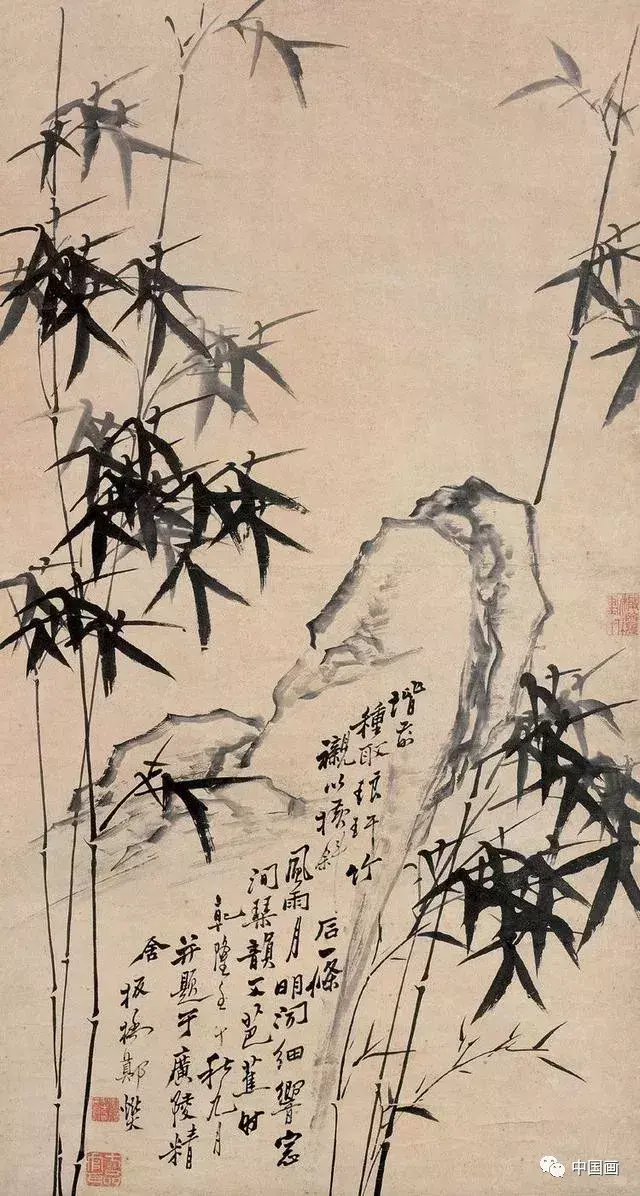 階前
種取琅玕竹
襯以橫斜
石一條
風雨月明聞細響窓
間琴韻又芭蕉時
乾隆壬午秋九月
并題于廣陵精
舍板橋鄭燮
中国画